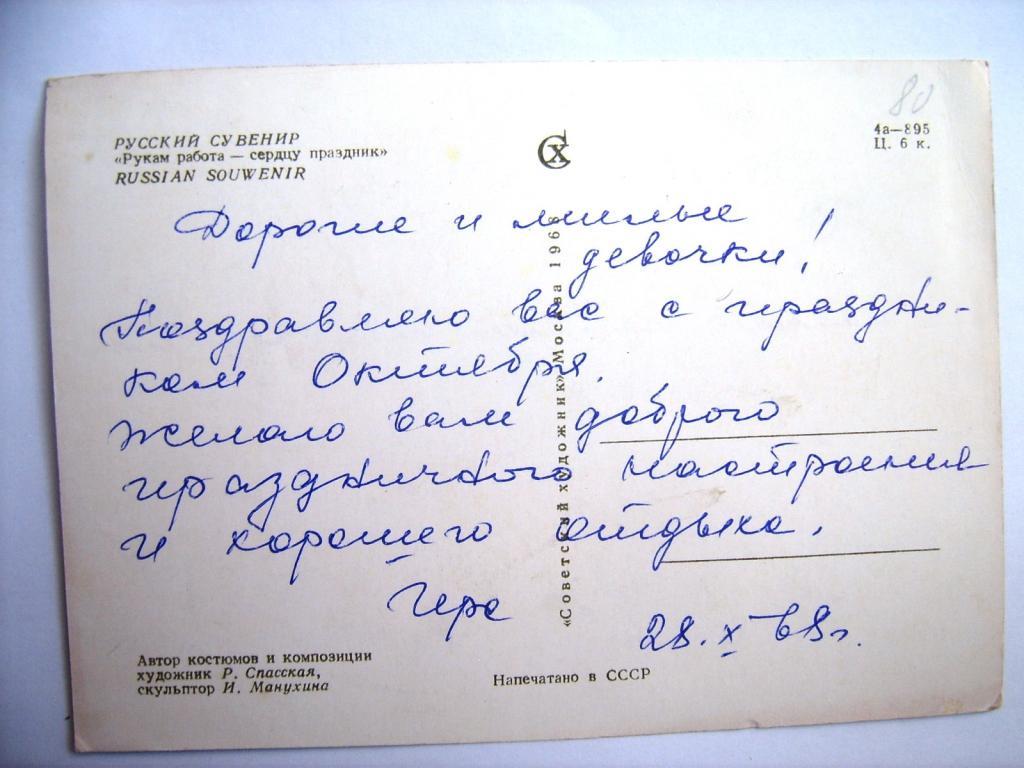 80
РУССКИЙ СУВЕНИР
«Рукам работа — сердцу праздник»
RUSSIAN SOUWENIR
СХ
4а—895
Ц. 6 к.
Дорогие и милые
девочки!
Поздравляю вас с праздни-
ком Октября.
Желаю вам доброго
праздничного настроения
и хорошего отдыха.
28.X 68 г.
«Советский художник» Москва 196
Автор костюмов и композиции
художник Р. Спасская,
скульптор И. Манухина
Напечатано в СССР